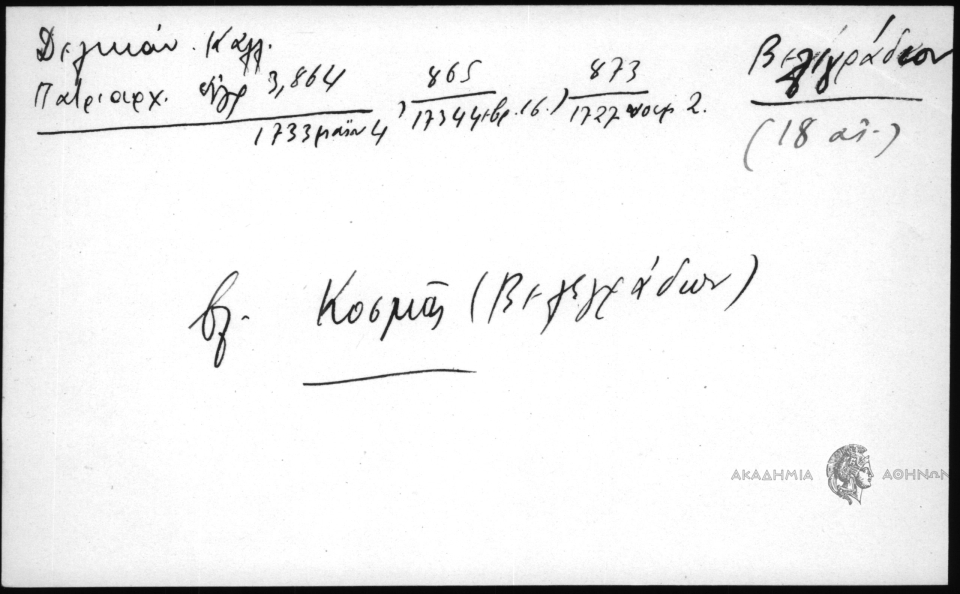 Δελικάν. Καλλ. Βελεγράδων
Πατριαρχ. έγγρ 3,864, 865, 873
1733 μαΐου 4 1734 φεβρ. 16. 1727 νοεμ 2.
(18 αἰ.)
βλ. Κοσμᾶς (Βελεγράδων)
ΑΚΑΔΗΜΙΑ ΑΘΗΝΩΝ